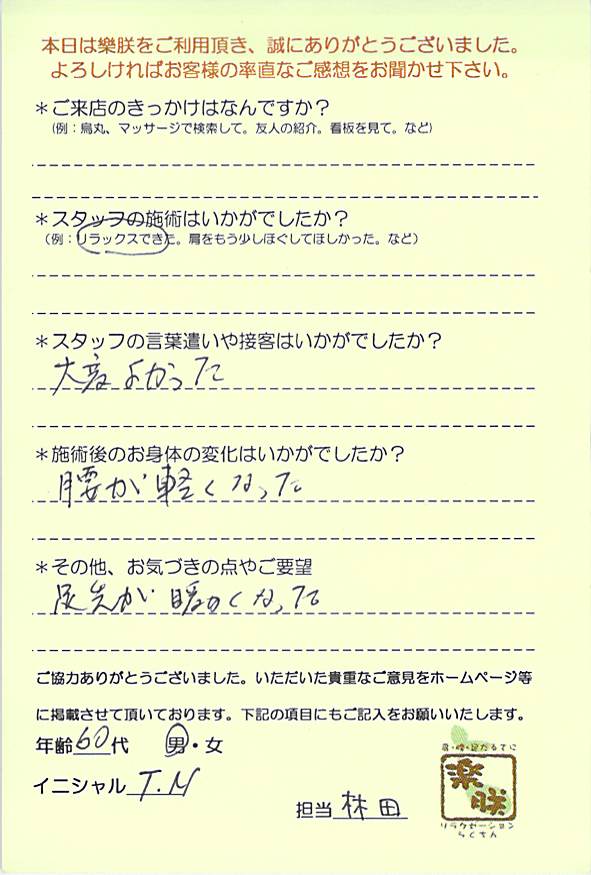 本日は樂朕をご利用頂き、誠にありがとうございました。
よろしければお客様の率直なご感想をお聞かせ下さい。
＊ご来店のきっかけはなんですか？
（例：烏丸、マッサージで検索して。友人の紹介。看板を見て。など）
＊スタッフの施術はいかがでしたか？
（例：リラックスできた。肩をもう少しほぐしてほしかった。など）
＊スタッフの言葉遣いや接客はいかがでしたか？
大変よかった
＊施術後のお身体の変化はいかがでしたか？
腰が軽くなった
＊その他、お気づきの点やご要望
足先が暖かくなった
ご協力ありがとうございました。いただいた貴重なご意見をホームページ等
に掲載させて頂いております。下記の項目にもご記入をお願いいたします。
年齢60代 男・女
イニシャル T.M
担当 林田
肩・腰・足だるてに
楽朕
リラクゼーション
らくちん